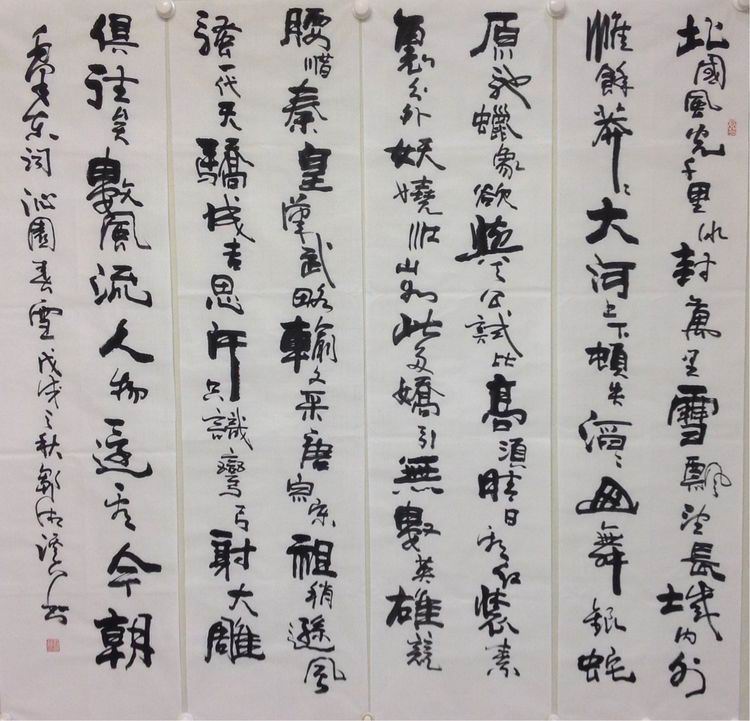 北國風光千里冰封萬里雪飄望長城內外
惟餘莽〻大河上下頓失滔〻山舞銀蛇
原馳蠟象欲與天公試比高須晴日看紅裝素
裹分外妖嬈江山如此多嬌引無數英雄競
腰惜秦皇漢武略輸文采唐宗宋祖稍遜風
騷一代天驕成吉思汗只識彎弓射大雕
俱往矣數風流人物還看今朝
毛澤东詞沁園春雪戊戌之秋鄒